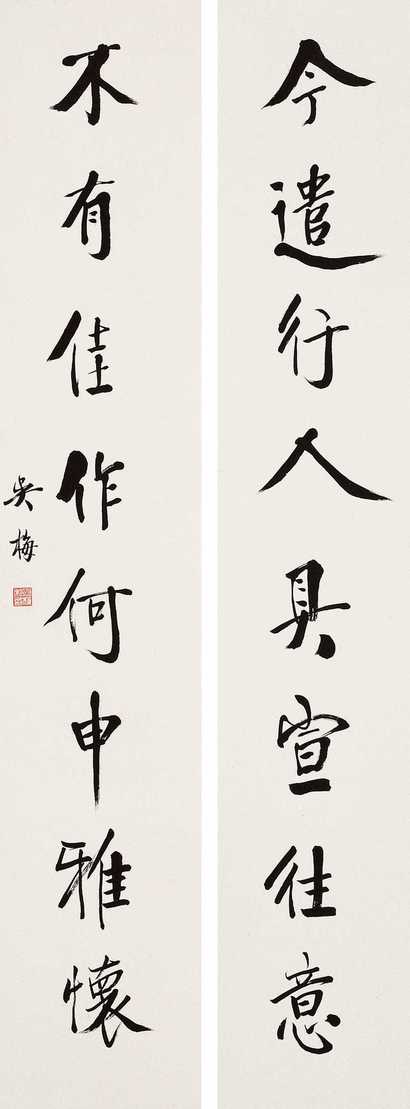 今遣行人具宣往意
不有佳作何申雅懷
吳梅